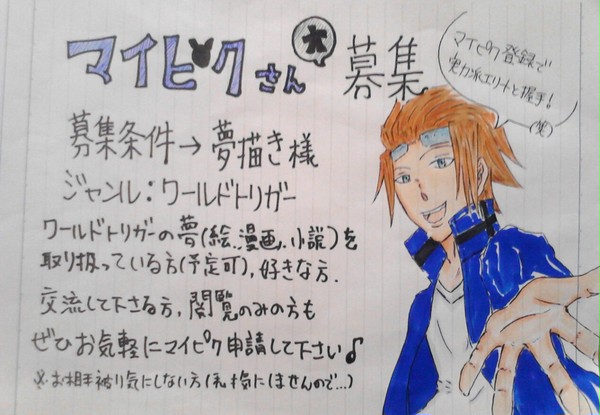 マイピクさん 大 募集
マイピク登録で
実力派エリートと握手！
(笑)
募集条件→夢描き様
ジャンル：ワールドトリガー
ワールドトリガーの夢(絵、漫画、小説)を
取り扱っている方(予定可)、好きな方.
交流して下さる方、閲覧のみの方も
ぜひお気軽にマイピク申請して下さい♪
※お相手被り気にしない方(私も気にしませんので…)